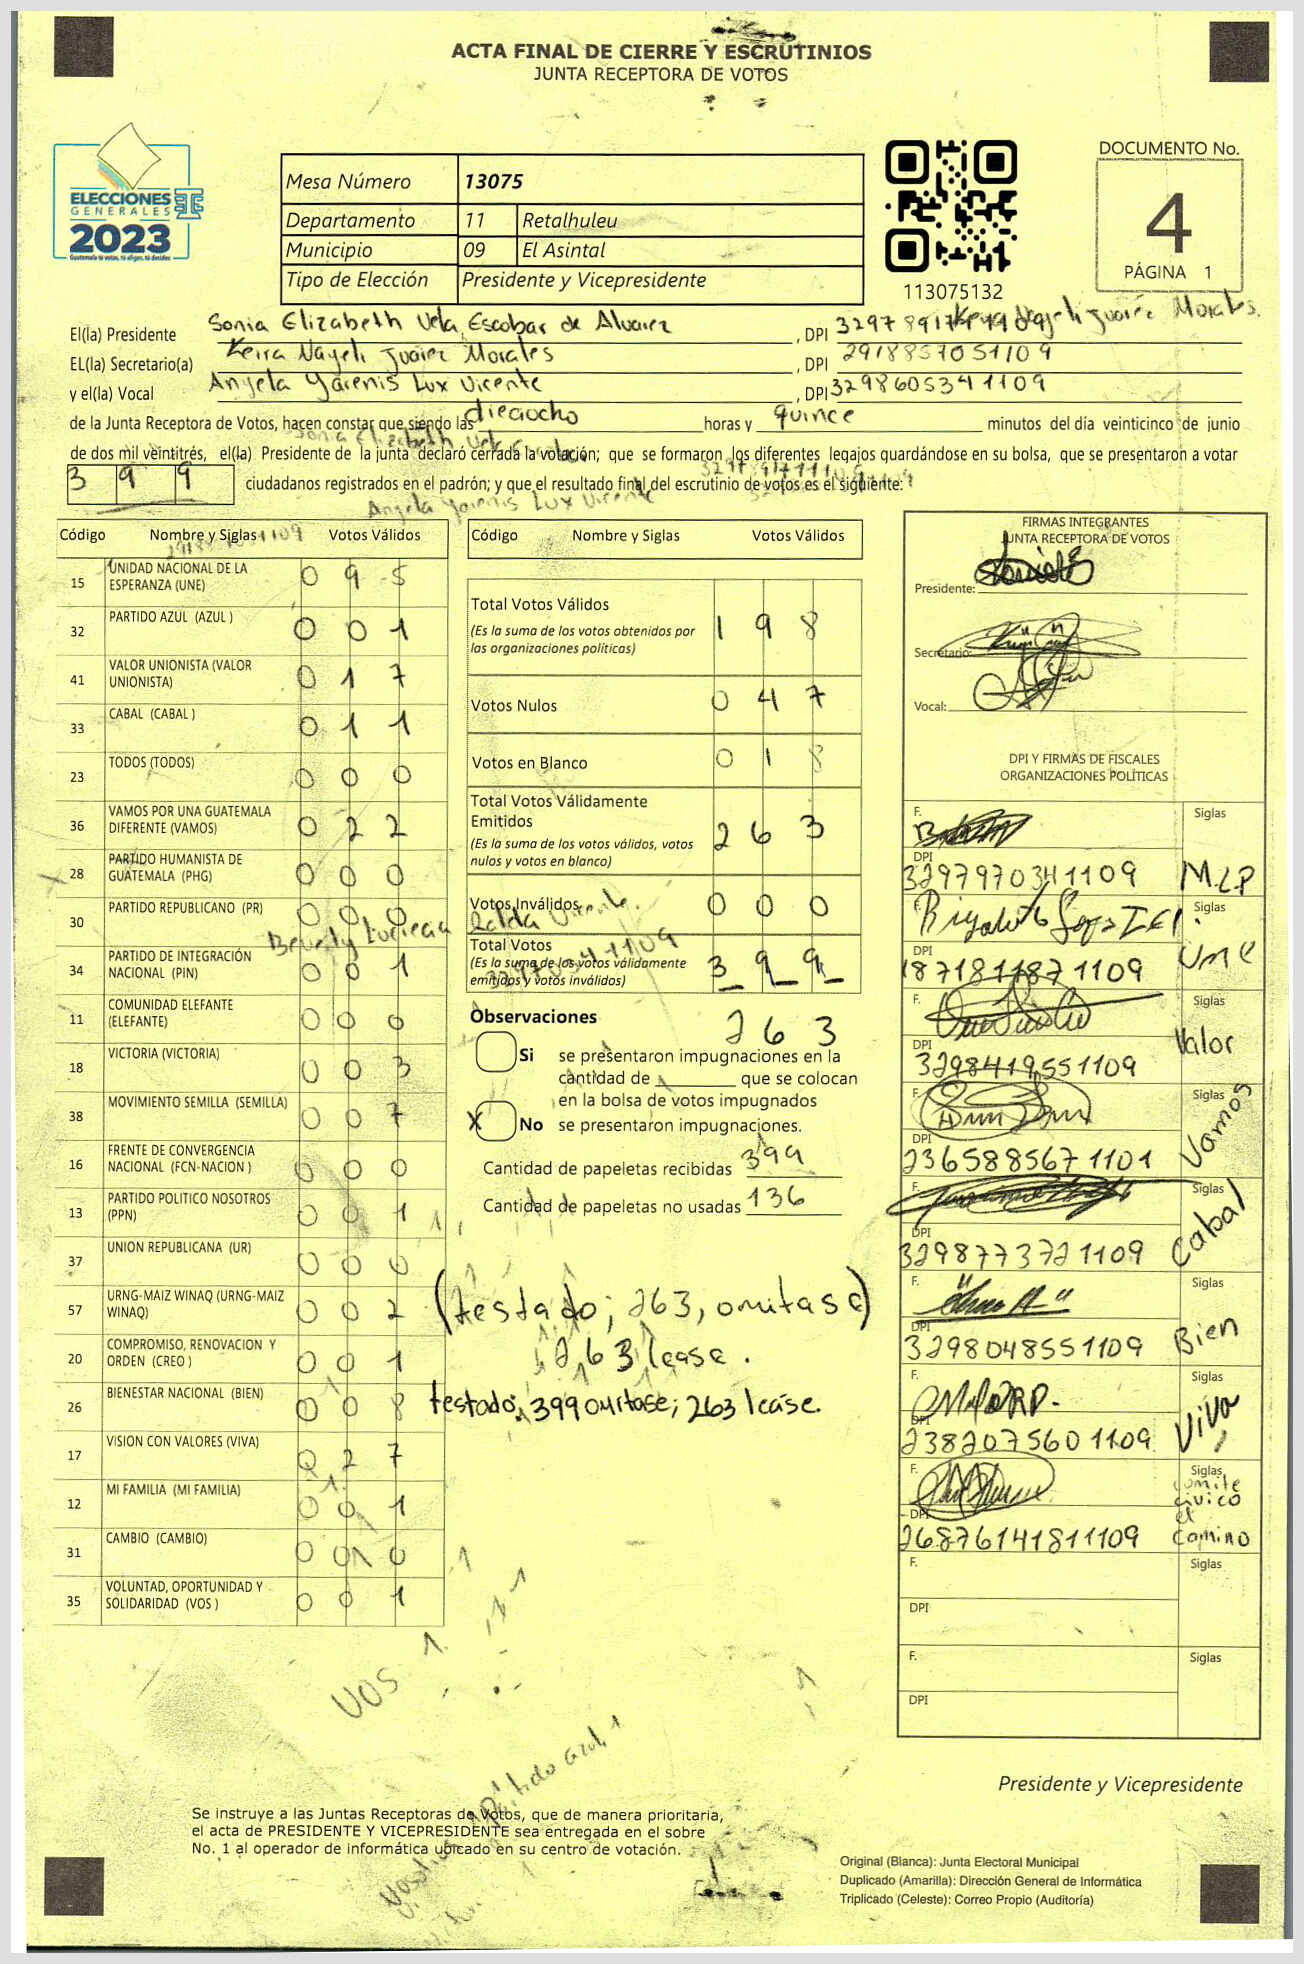 ACTA FINAL DE CIERRE Y ESCRUTINIOS
JUNTA RECEPTORA DE VOTOS
ELECCIONES
GENERALES
2023
Guatemala tú votas, tú eliges, tú decides
Mesa Número 13075
Departamento 11 Retalhuleu
Municipio 09 El Asintal
Tipo de Elección Presidente y Vicepresidente
113075132
DOCUMENTO No.
4
PÁGINA 1
El(la) Presidente Sonia Elizabeth Vela Escobar de Alvarez , DPI
Keira Nayeli Juárez Morales.
EL(la) Secretario(a) Keira Nayeli Juárez Morales , DPI 2918857051109
y el(la) Vocal Angela Yarenis Lux Vicente , DPI 3298605341109
de la Junta Receptora de Votos, hacen constar que siendo las dieciocho horas y quince minutos del día veinticinco de junio
Sonia Elizabeth Vela Escobar
de dos mil veintitrés, el(la) Presidente de la junta declaró cerrada la votación; que se formaron los diferentes legajos guardándose en su bolsa, que se presentaron a votar
3 9 9 ciudadanos registrados en el padrón; y que el resultado final del escrutinio de votos es el siguiente:
Angela Yarenis Lux Vicente
Código Nombre y Siglas Votos Válidos
15 UNIDAD NACIONAL DE LA ESPERANZA (UNE) 0 9 5
32 PARTIDO AZUL (AZUL ) 0 0 1
41 VALOR UNIONISTA (VALOR UNIONISTA) 0 1 7
33 CABAL (CABAL ) 0 1 1
23 TODOS (TODOS) 0 0 0
36 VAMOS POR UNA GUATEMALA DIFERENTE (VAMOS) 0 2 2
28 PARTIDO HUMANISTA DE GUATEMALA (PHG) 0 0 0
30 PARTIDO REPUBLICANO (PR) 0 0 0
34 PARTIDO DE INTEGRACIÓN NACIONAL (PIN) 0 0 1
11 COMUNIDAD ELEFANTE (ELEFANTE) 0 0 0
18 VICTORIA (VICTORIA) 0 0 3
38 MOVIMIENTO SEMILLA (SEMILLA) 0 0 7
16 FRENTE DE CONVERGENCIA NACIONAL (FCN-NACION ) 0 0 0
13 PARTIDO POLITICO NOSOTROS (PPN) 0 0 1
37 UNION REPUBLICANA (UR) 0 0 0
57 URNG-MAIZ WINAQ (URNG-MAIZ WINAQ) 0 0 2
20 COMPROMISO, RENOVACION Y ORDEN (CREO ) 0 0 1
26 BIENESTAR NACIONAL (BIEN) 0 0 8
17 VISION CON VALORES (VIVA) 0 2 7
12 MI FAMILIA (MI FAMILIA) 0 0 1
31 CAMBIO (CAMBIO) 0 0 0
35 VOLUNTAD, OPORTUNIDAD Y SOLIDARIDAD (VOS ) 0 0 1
VOS 1
Partido azul 1
Código Nombre y Siglas Votos Válidos
Total Votos Válidos 1 9 8
(Es la suma de los votos obtenidos por las organizaciones políticas)
Votos Nulos 0 4 7
Votos en Blanco 0 1 8
Total Votos Válidamente Emitidos 2 6 3
(Es la suma de los votos válidos, votos nulos y votos en blanco)
Votos Inválidos 0 0 0
Total Votos 3 9 9
(Es la suma de los votos válidamente emitidos y votos inválidos)
Vicente.
Observaciones 2 6 3
Si se presentaron impugnaciones en la
cantidad de ______ que se colocan
en la bolsa de votos impugnados
X No se presentaron impugnaciones.
Cantidad de papeletas recibidas 399
Cantidad de papeletas no usadas 136
(testado; 263, omitase)
263 lease.
testado; 399 omitase; 263 léase.
FIRMAS INTEGRANTES
JUNTA RECEPTORA DE VOTOS
Presidente:
Secretario:
Vocal:
DPI Y FIRMAS DE FISCALES
ORGANIZACIONES POLÍTICAS
F. Siglas
DPI 3297970341109 M.L.P
F. Siglas
DPI 1871811871109 UNE
F. Siglas
DPI 3298419551109 Valor
F. Siglas
DPI 2365885671101 Vamos
F. Siglas
DPI 3298773721109 Cabal
F. Siglas
DPI 3298048551109 Bien
F. Siglas
DPI 2382075601109 Viva
F. Siglas
DPI 26876141811109 comite civico el camino
F. Siglas
DPI
F. Siglas
DPI
Presidente y Vicepresidente
Se instruye a las Juntas Receptoras de Votos, que de manera prioritaria,
el acta de PRESIDENTE Y VICEPRESIDENTE sea entregada en el sobre
No. 1 al operador de informática ubicado en su centro de votación.
Original (Blanca): Junta Electoral Municipal
Duplicado (Amarilla): Dirección General de Informática
Triplicado (Celeste): Correo Propio (Auditoría)